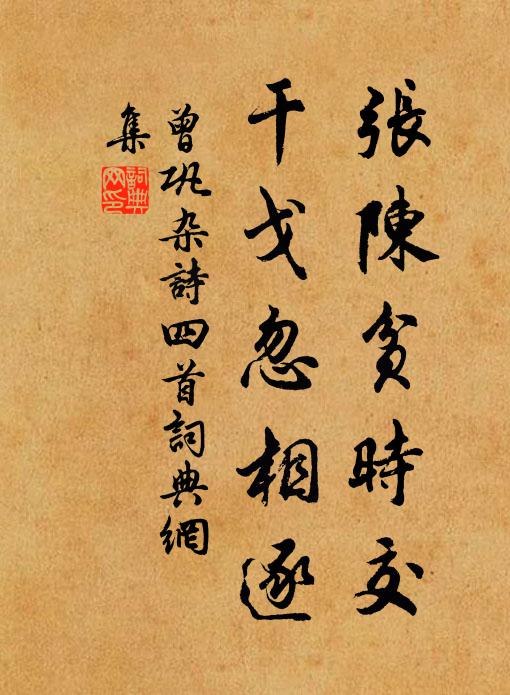 張陳貧時交
干戈忽相逐
曾巩杂詩四首詞典網
集
詞典网印